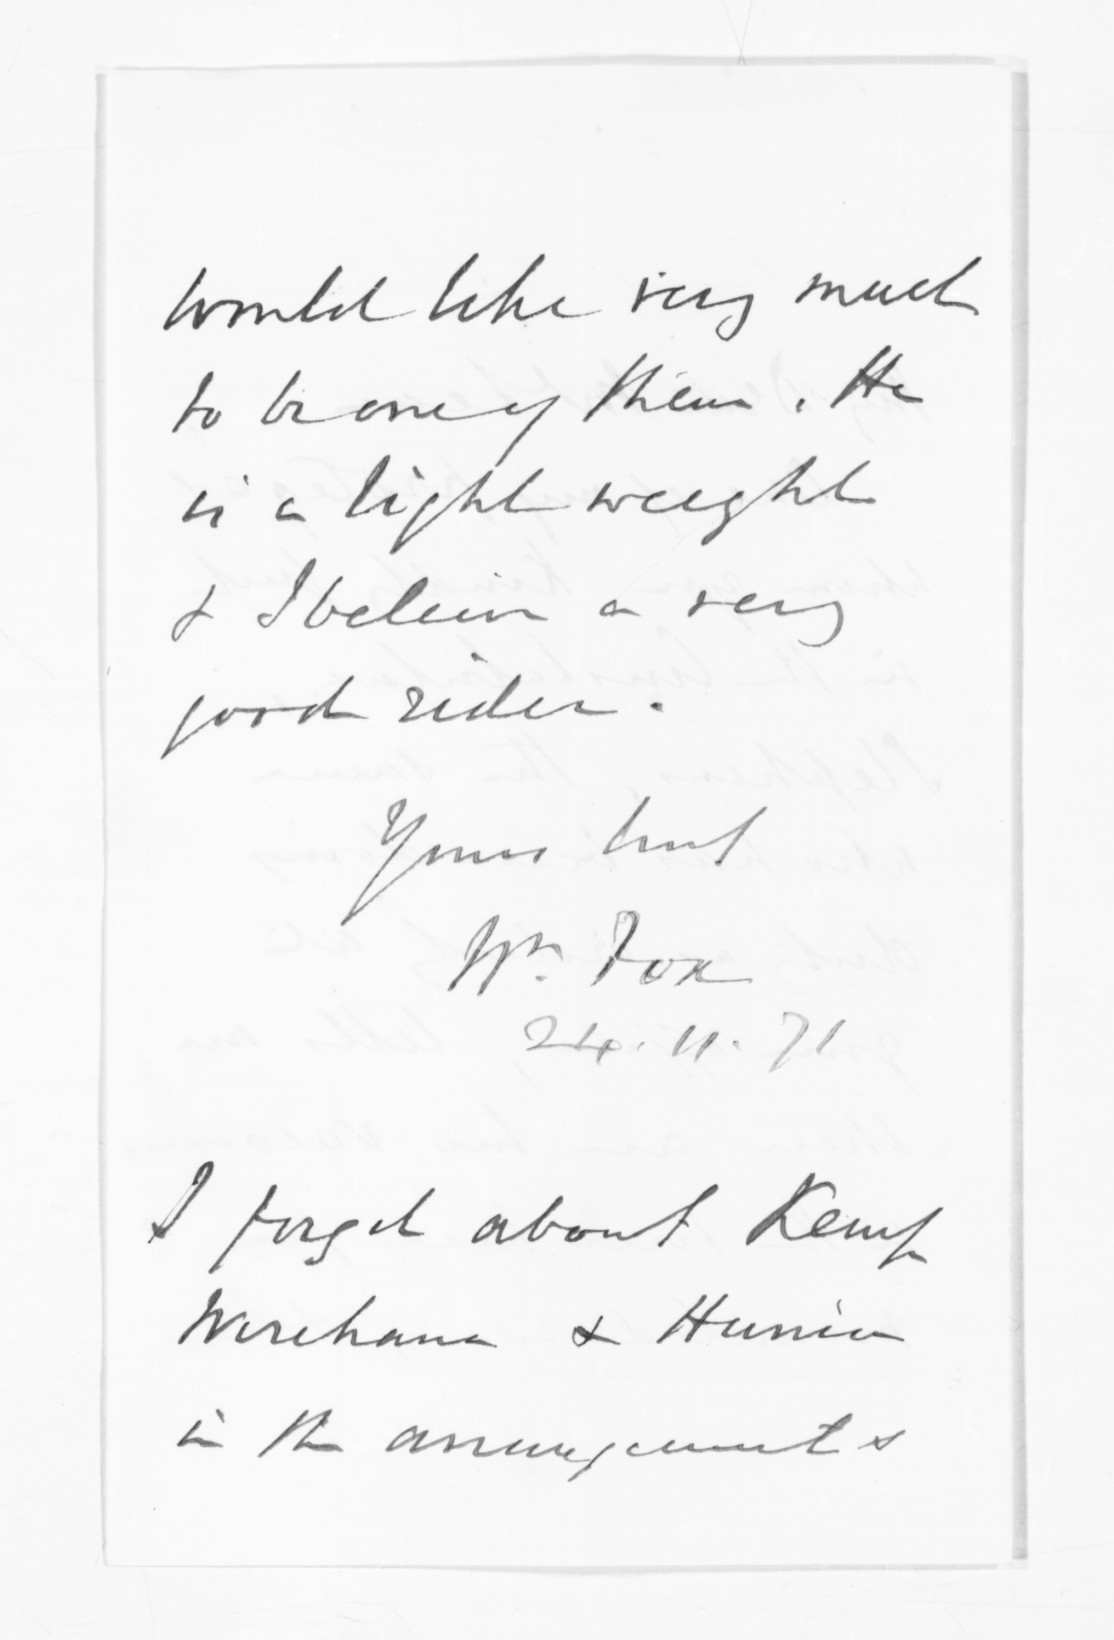 would like very much
to be one of them. He
is a light weight
& I believe a very
good rider.
Yours truly
Wm. Fox
24.11.71
I forget about Kemp
Wirihana & Hunia
in the arrangements